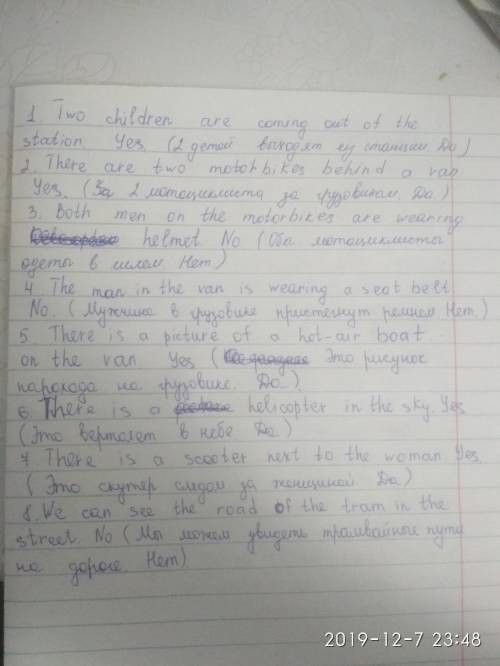 1. Two children are coming out of the
station. Yes. (2 детей выходят из станции Да)
2. There are two motorbikes behind a van
Yes. (За 2 мотоциклиста за грузовиком. Да.)
3. Both men on the motorbikes are wearing
helmet. No (Оба мотоциклисты
одеты в шлем. Нет.)
4. The man in the van is wearing a seat belt
No. (Мужчина в грузовике пристегнут ремнем Нет.)
5. There is a picture of a hot-air boat
on the van Yes (Это рисунок
парохода на грузовике. Да)
6. There is a helicopter in the sky. Yes
(Это вертолет в небе Да)
7. There is a scooter next to the woman Yes.
(Это скутер следом за женщиной Да)
8. We can see the road of the tram in the
street. No (Мы можем увидеть трамвайные пути
на дороге. Нет)
2019-12-7 23:48